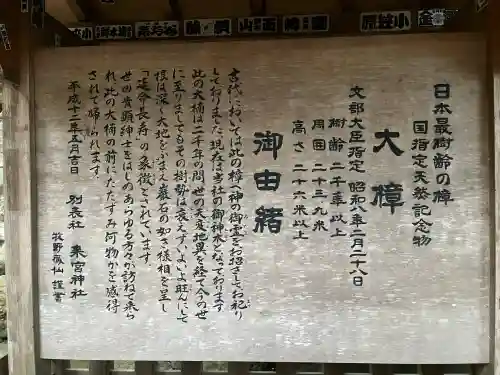 日本最樹齢の樟
国指定天然記念物
大樟
文部大臣指定 昭和八年二月二十八日
樹齢 二千年以上
周囲 二十三、九米
高さ 二十六米以上
御由緒
古代においては此の樟へ神の御霊をお招きしてお祀り
しておりました。現在は当社の御神木となっております
此の大楠は二千年の間世の天変地異を経て今の世
に至りましてもその樹勢は衰えず、いよいよ旺んにして
根は深く大地をふまえ巌石の如き様相を呈し
「延命長寿」の象徴とされています。
世四貴顕紳士をはじめあらゆる方々が訪ねて来ら
れ、此の大楠の前にたたずみ何物かを感得
されて帰られます。
平成十二年五月吉日
別表社 来宮神社
牧野 仙 謹書